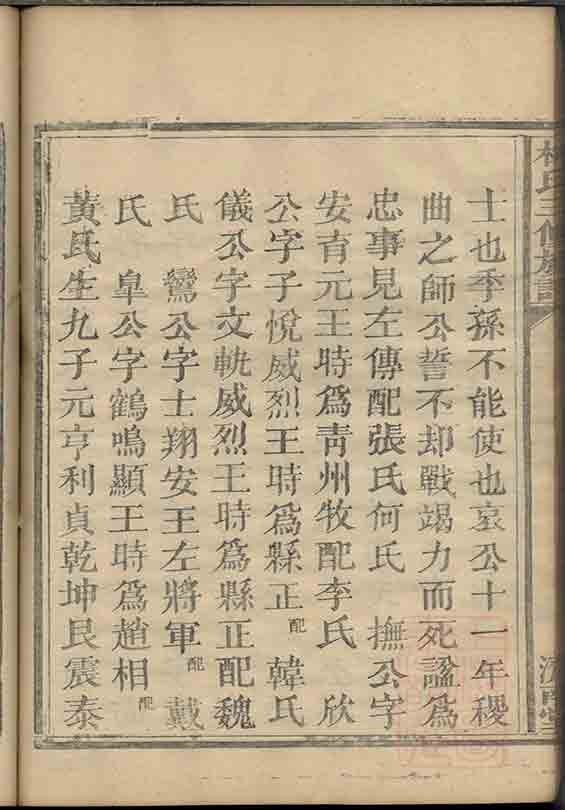 士也季孫不能使也哀公十一年稷
曲之師公誓不却戰竭力而死諡爲
忠事見左傳配張氏何氏　撫公字
安育元王時爲靑州牧配李氏　欣
公字子悅威烈王時爲縣正配　韓氏
儀公字文軌威烈王時爲縣正配魏
氏　鸞公字士翔安王左將軍配　戴
氏　皐公字鶴鳴顯王時爲趙相配
黃氏生九子元亨利貞乾坤艮震泰
林氏三修族譜